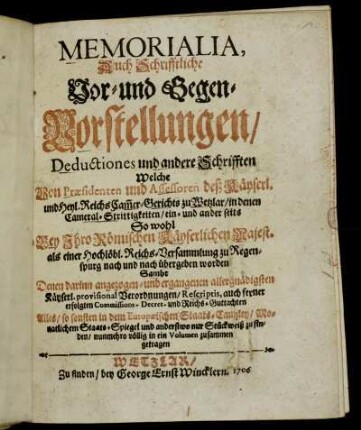 MEMORIALIA,
Auch Schrifftliche
Vor- und Gegen-
Vorstellungen/
Deductiones und andere Schrifften
Welche
Von Præsidenten und Assessoren deß Käyserl.
und Heyl. Reichs Cam̃er-Gerichts zu Wetzlar/ in denen
Cameral-Strittigkeiten/ ein- und ander seits
So wohl
Bey Ihro Römischen Käyserlichen Majest.
als einer Hochlöbl. Reichs-Versammlung zu Regen-
spurg nach und nach übergeben worden
Sambt
Denen darinn angezogen- und ergangenen allergnädigsten
Käyserl. provisional Verordnungen/ Rescriptis, auch ferner
erfolgten Commissions- Decret- und Reichs-Gutachten
Alles/ so sonsten in dem Europæischen Staats-Cantzley/ Mo-
natlichem Staats-Spiegel und anderstwo nur Stückweiß zu fin-
den/ nunmehro völlig in ein Volumen zusammen
getragen
WETZLAR/
Zu finden/ bey George Ernst Wincklern. 1706